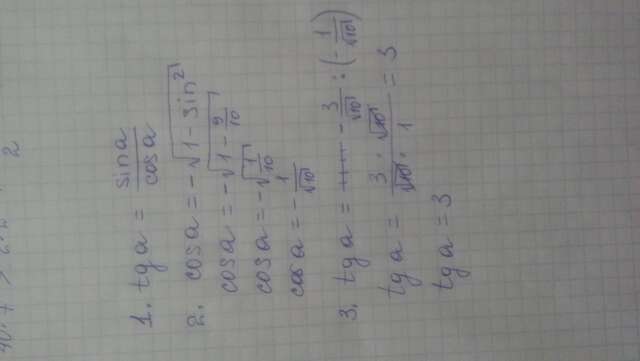 2
1. tg a = sina / cosa
2. cosa = -√1 - sin²
cosa = -√1 - 9/10
cosa = -√1/10
cosa = - 1/√10
3. tg a = - 3/√10 : (- 1/√10)
tg a = 3 · √10 / √10 · 1 = 3
tg a = 3